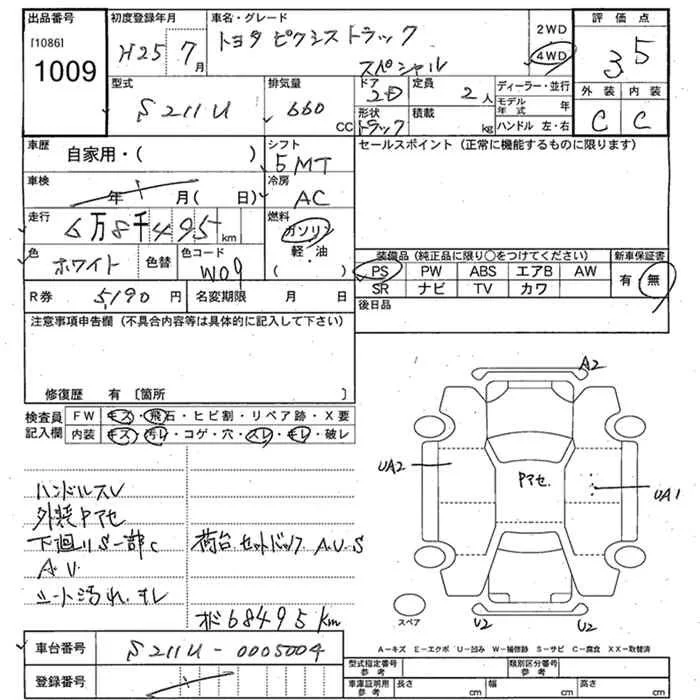 出品番号
[1086]
1009
初度登録年月
H25 7月
車名・グレード
トヨタ ピクシス トラック
スペシャル
2WD
4WD
評価点
3.5
外装 内装
C C
型式
S211U
排気量
660
CC
ドア
2D
形状
トラック
定員
2人
積載
kg
ディーラー・並行
モデル年式 年
ハンドル 左・右
車歴
自家用・( )
シフト
5MT
セールスポイント (正常に機能するものに限ります)
車検
年 月( 日)
冷房
AC
走行
6万8千495km
燃料
ガソリン
軽・油
( )
色
ホワイト
色替
色コード
W09
装備品 (純正品に限り○をつけてください)
新車保証書
PS PW ABS エアB AW
SR ナビ TV カワ
有 無
R券 5,190円
名変期限 月 日
後日品
注意事項申告欄 (不具合内容等は具体的に記入して下さい)
修復歴 有 〔箇所 〕
検査員
記入欄
FW キズ・飛石・ヒビ割・リペア跡・X要
内装 キズ・汚レ・コゲ・穴・スレ・キレ・破レ
ハンドルスレ
外装Pアセ
下廻りS一部C
A.U.
シート汚れ.キレ
荷台.セットバック A.U.S
メーター 68495km
A2
UA2
Pアセ.
UA1
U2 U2
スペア
A―キズ E―エクボ U―凹み W―補修跡 S―サビ C―腐食 XX―取替済
車台番号
S211U-0005004
登録番号
型式指定番号
参考
類別区分番号
参考
車庫証明用
参考
長さ cm 幅 cm 高さ cm